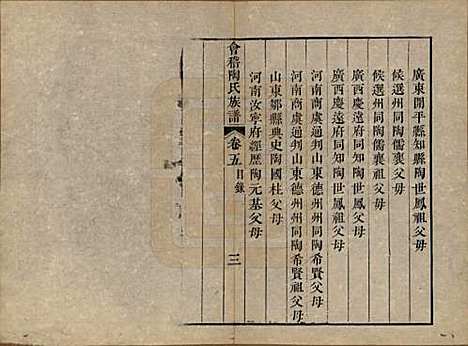 廣東開平縣知縣陶世鳳祖父母
候選州同陶儒襄祖父母
候選州同陶儒襄父母
廣西慶遠府同知陶世鳳祖父母
廣西慶遠府同知陶世鳳父母
河南商虞通判山東德州州同陶希賢祖父母
河南商虞通判山東德州州同陶希賢父母
山東鄒縣典史陶國柱父母
河南汝寧府經歷陶元基父母
會稽陶氏族譜 卷五 目錄 三